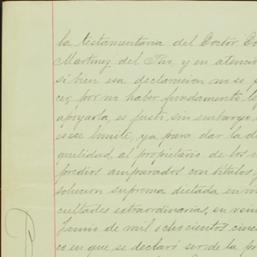 la testamentaria del Doctor
Martinez del Rio, y en atencion
si bien esa declaracion no se
ce, por no haber fundamento
apoyarla, es justo, sin embargo
ese limite, ya para dar la
quilidad, al propietario de los
predios amparados con titulos,
solucion suprema dictada en
cultades extraordinarias, en
Junio de mil ochocientos cinc
co en que se declaró ser de la